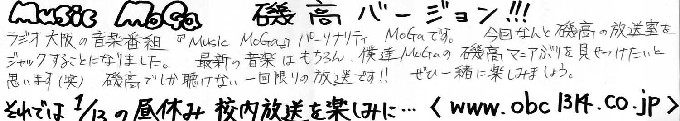 Music MoGa 磯高バージョン!!!
ラジオ大阪の音楽番組『Music MoGa』パーソナリティ MoGaです。 今回なんと磯高の放送室を
ジャックすることになりました。 最新の音楽はもちろん、僕達MoGaの磯高マニアぶりを見せつけたいと
思います(笑) 磯高でしか聴けない一回限りの放送です!! ぜひ一緒に楽しみましょう。
それでは 1/13の昼休み 校内放送を楽しみに… < www.obc1314.co.jp >